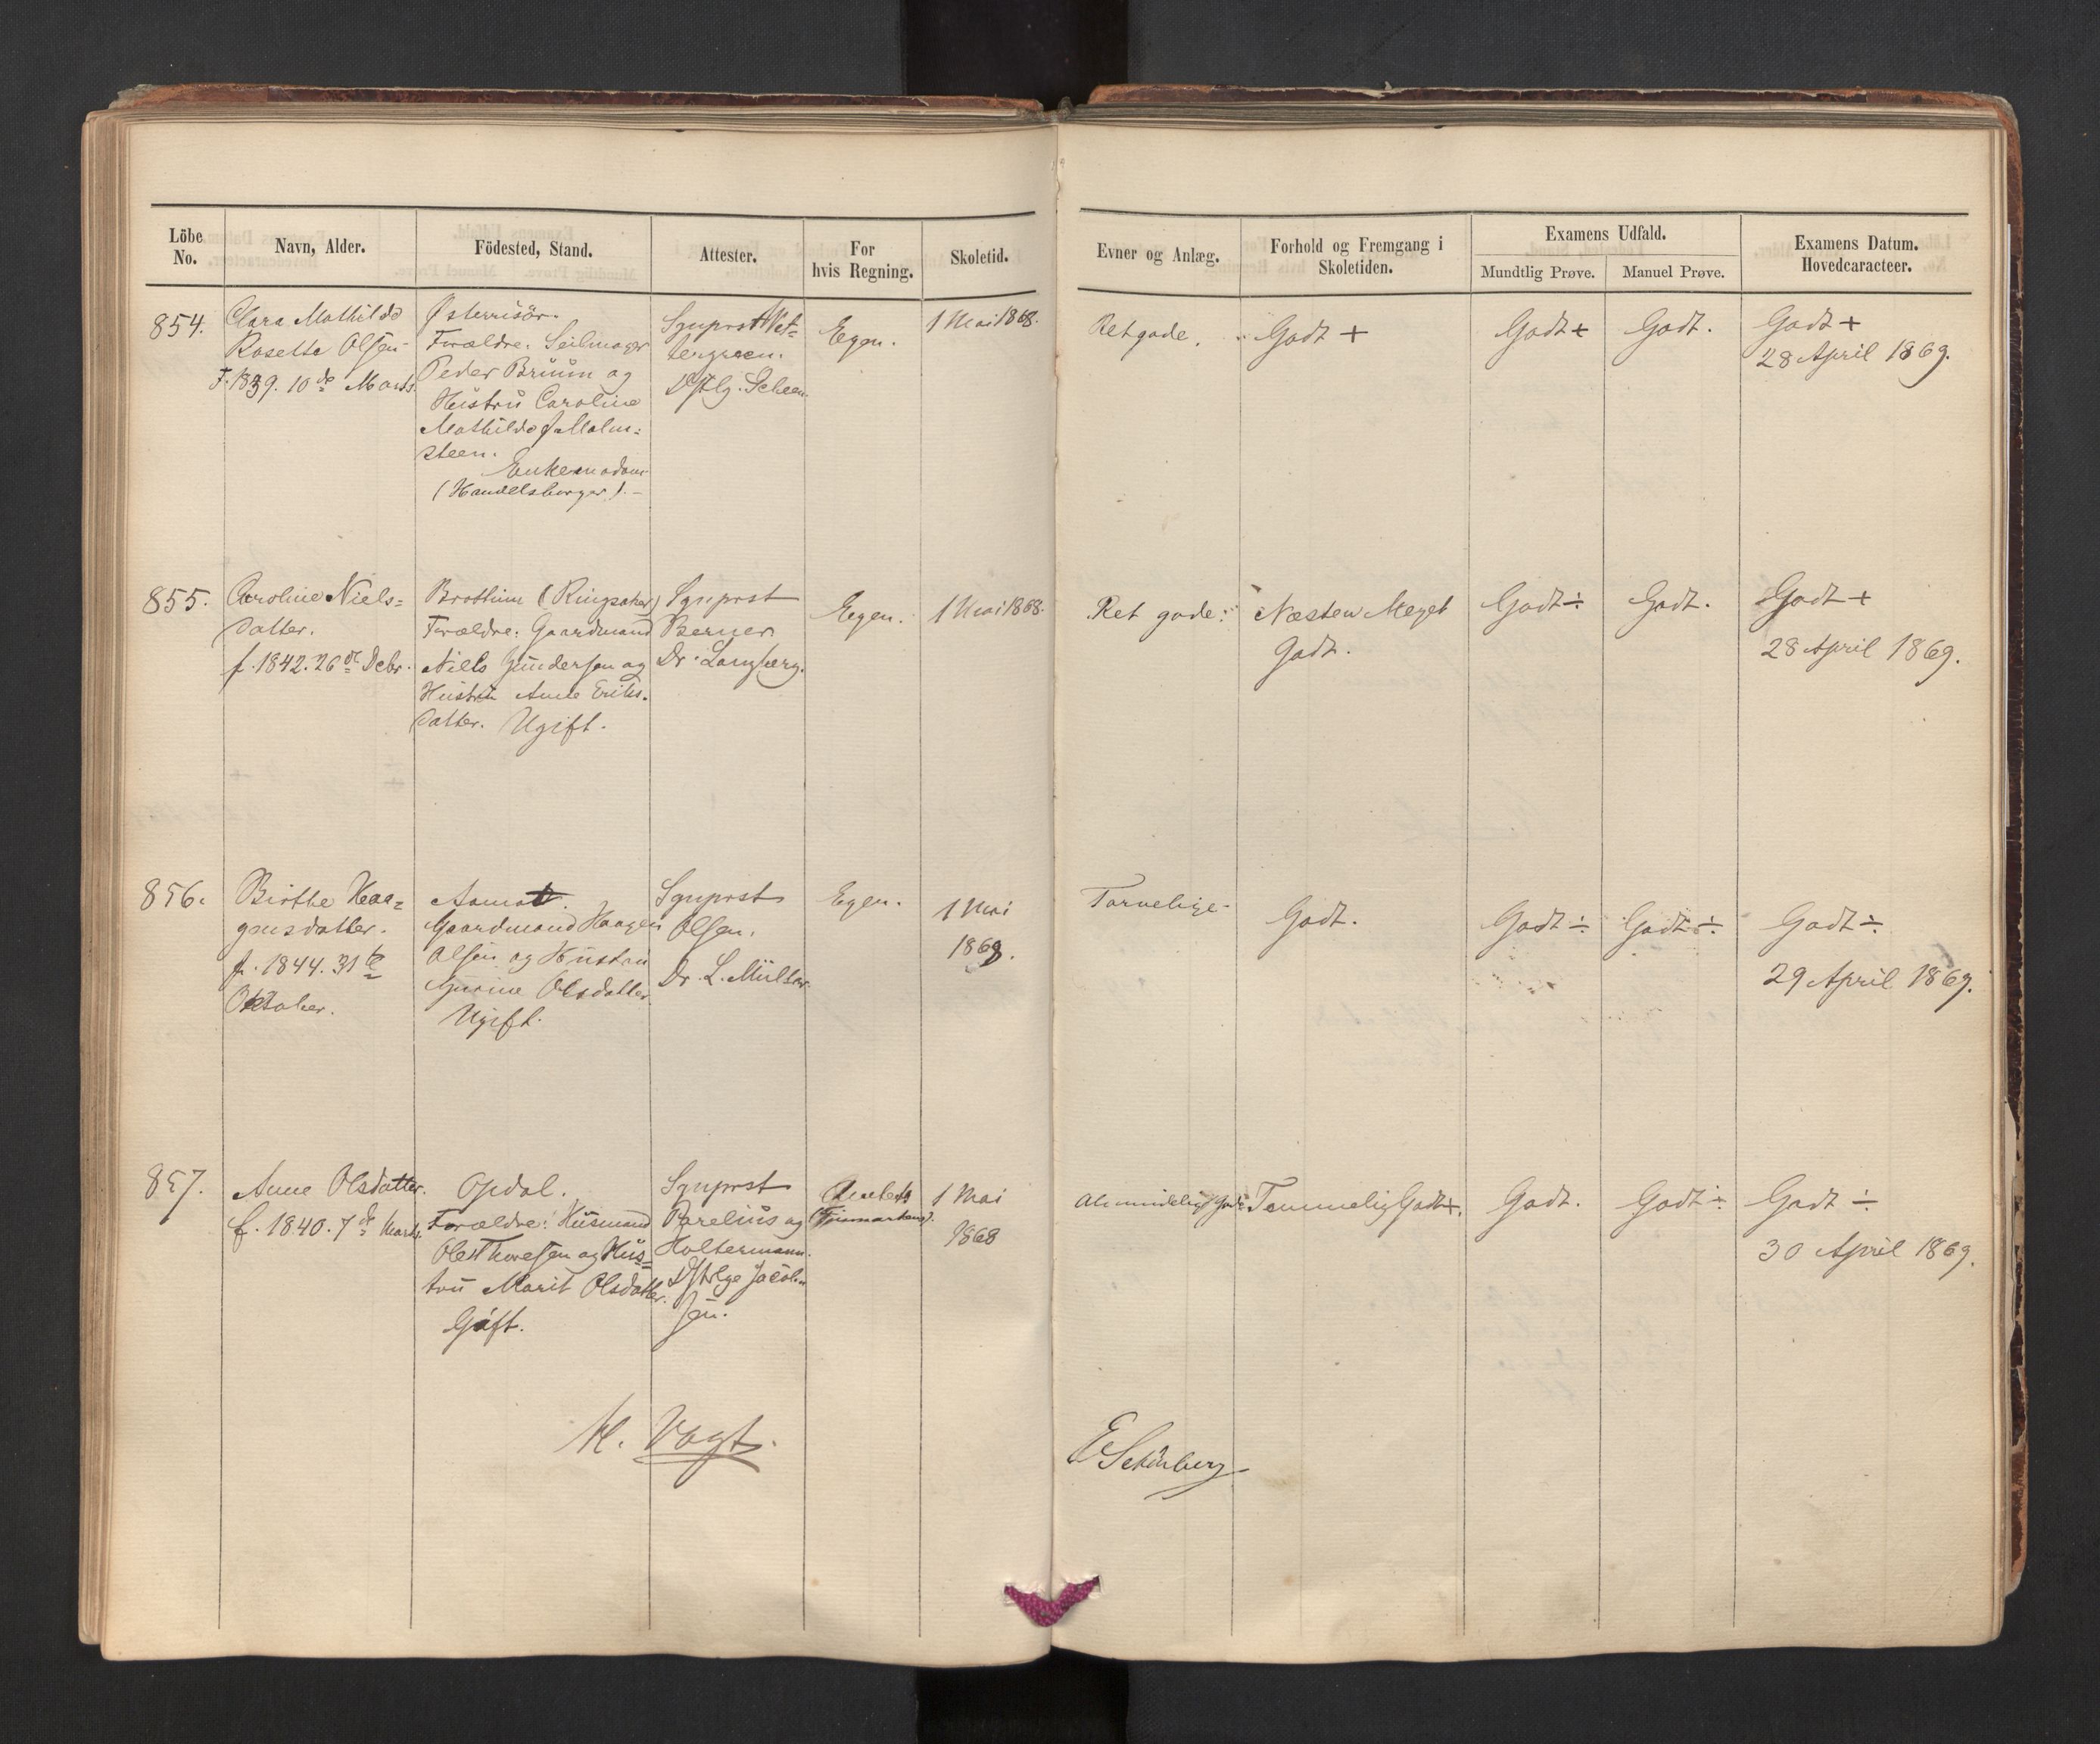 Löbe No.
Navn, Alder.
Födested, Stand.
Attester.
For hvis Regning.
Skoletid.
Evner og Anlæg.
Forhold og Fremgang i Skoletiden.
Examens Udfald.
Mundtlig Prøve.
Manuel Prøve.
Examens Datum. Hovedcaracteer.
854.
Clara Mathilde
Rosette Olsen
F. 1839. 10de Marts.
Østerrisör.
Forældre: Seilmager
Peder Bruun og
Hustru Caroline
Mathilde f Malm=
steen.
Enkemadam
(Handelsborger). –
Sgnprst Wet=
tergreen.
Dstlg. Scheen.
Egen.
1 Mai 1868.
Ret gode.
Godt +
Godt +
Godt.
Godt +
28 April 1869.
855.
Caroline Niels=
datter.
f. 1842. 26de Debr.
Brøttum (Ringsaker)
Forældre: Gaardmand
Niels Gundersen og
Hustru Anne Eriks.
datter. Ugift.
Sgnprst
Berner
Dr. Langberg.
Egen.
1 Mai 1868.
Ret gode.
Næsten Meget
Godt.
Godt ÷
Godt.
Godt +
28 April 1869.
856.
Birthe Haa=
gensdatter.
f. 1844. 31te
Oktober.
Aamot.
Gaardmand Haagen
Olsen og Hustru
Gurine Olsdatter
Ugift.
Sgnprst
Olsen.
Dr. L. Müller.
Egen.
1 Mai
1868.
Tarvelige.
Godt.
Godt ÷
Godt ÷.
Godt ÷
29 April 1869.
857.
Anne Olsdatter.
f. 1840. 7de Marts.
Opdal.
Forældre: Husmand
Ole Thoresen og Hus=
tru Marit Olsdatter.
Gift.
Sgnprst
Parelius og
Holtermann.
Dstrlge Jacob
sen.
Amtets
(Finmarkens).
1 Mai
1868
Almindelig gode
Temmelig Godt +.
Godt.
Godt ÷
Godt ÷
30 April 1869.
M. Vogt.
E Schönberg